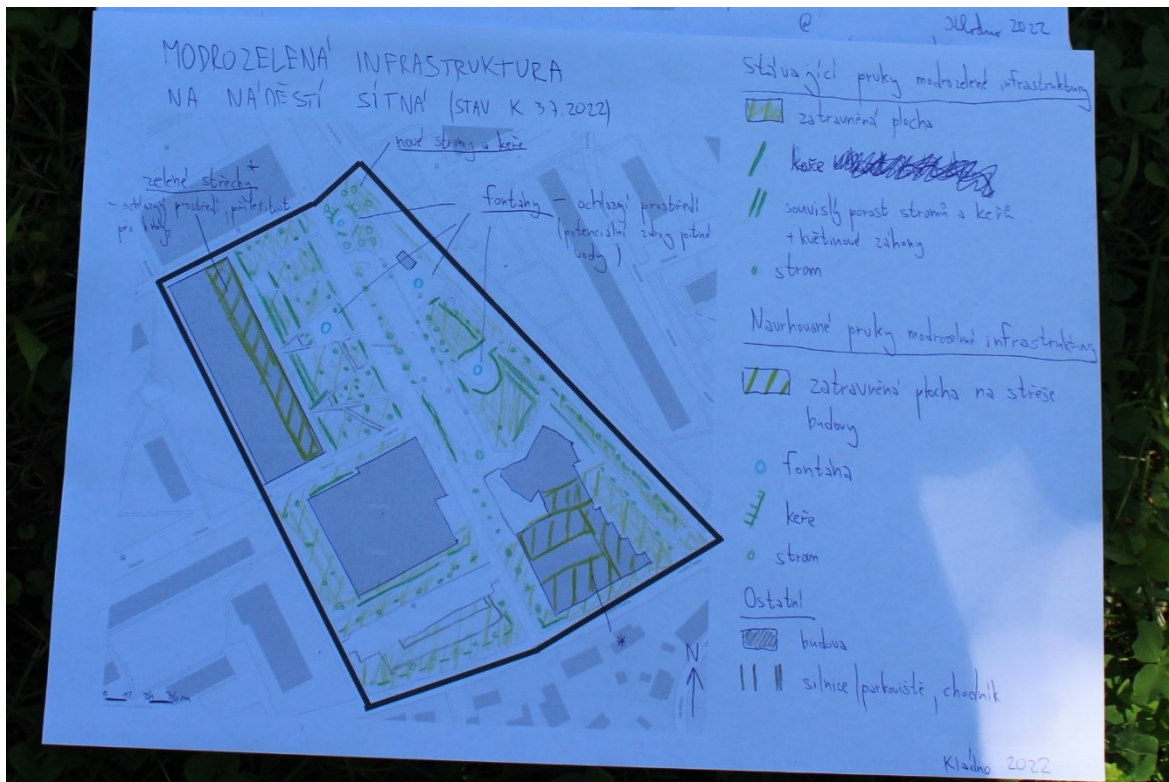 @ , Kladno 2022
MODROZELENÁ INFRASTRUKTURA
NA NÁDĚSTÍ SÍTNÁ (STAV K 3.7.2022)
nové stromy a keře
zelené střechy *
– ochlazují prostředí, příležitost
pro
fontány – ochlazují prostředí
(potenciální zdroj pitné
vody)
*
N
0 12 24 36 m
Stávající prvky modrozelené infrastruktury
zatravněná plocha
keře
souvislý porost stromů a keřů
+ květinové záhony
strom
Navrhované prvky modrozelené infrastruktury
zatravněná plocha na střeše
budovy
fontána
keře
strom
Ostatní
budova
silnice/parkoviště, chodník
Kladno 2022